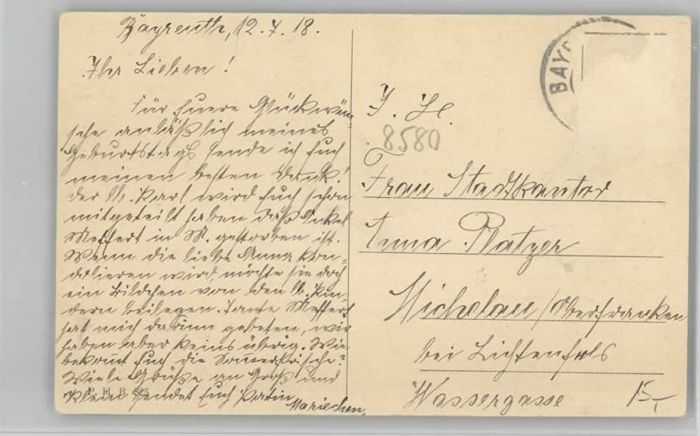 Bayreuth, 12.7.18.
Ihr Lieben!
Für Euere Glückwün-
sche anläßlich meines
Geburtstags sende ich Euch
meinen besten Dank!
Der lb. Karl wird Euch schon
mitgeteilt haben daß Onkel
Meffert in M. gestorben ist.
Wenn die liebe Anna kon-
dolieren wird, möchte sie doch
ein Bildchen von den lb. Kin-
dern beilegen. Tante Meffert
hat mich darum gebeten, wir
haben aber keins übrig. Wie
bekommt Euch die Sommerfrische?
Viele Grüße an Groß und
Klein sendet Euch Patin
Mariechen.
BAY
8580
Frau Stadtkantor
Anna Platzer
Michelau/Oberfranken
bei Lichtenfels
Wassergasse
15,-